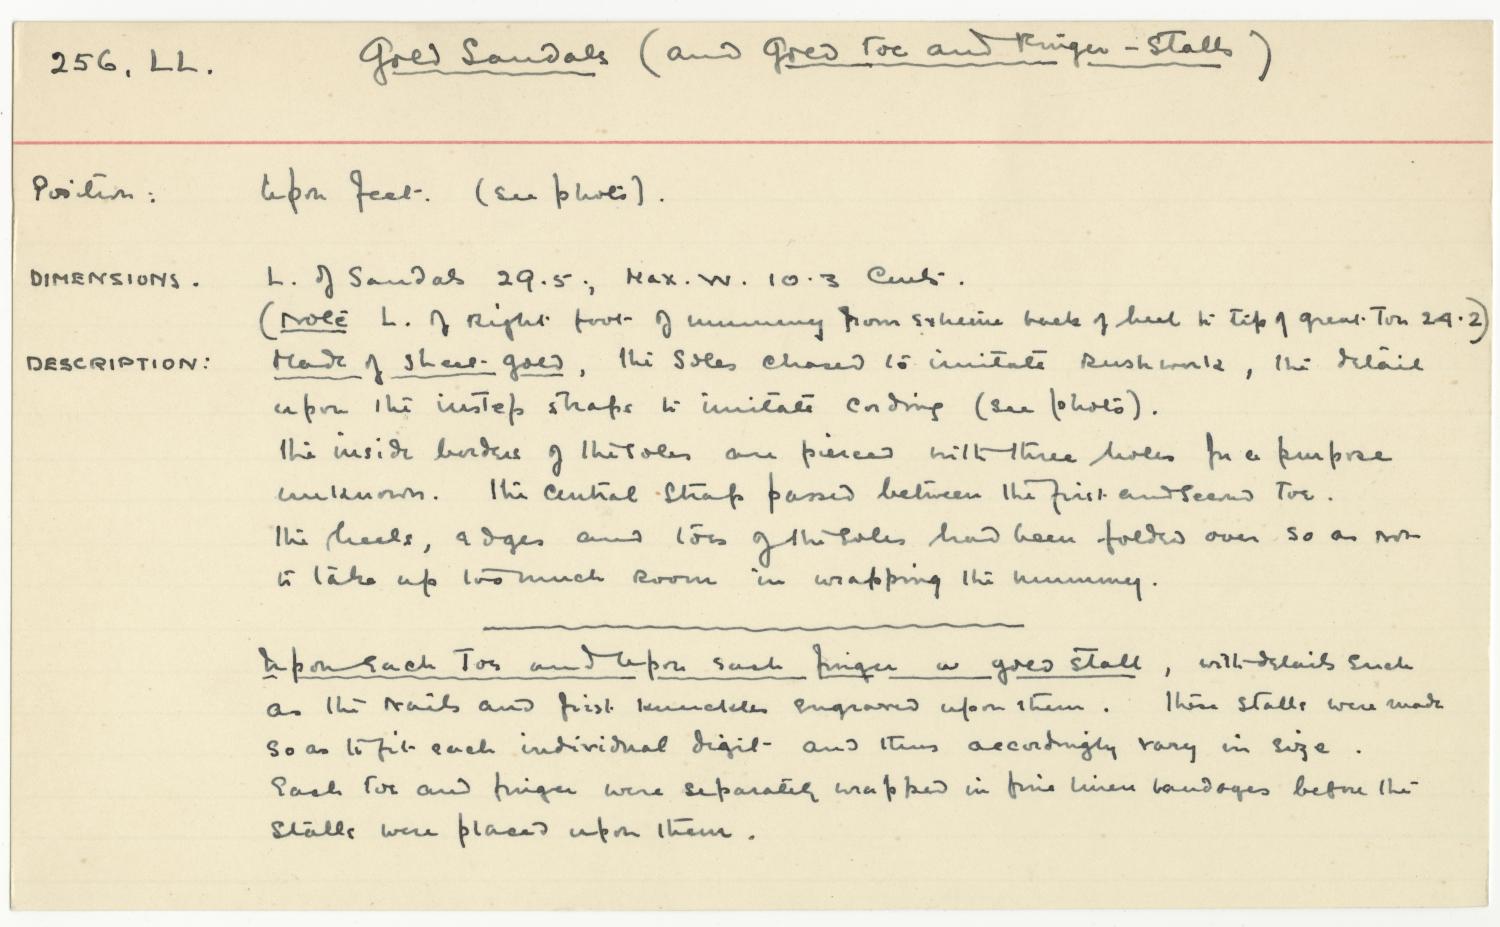 256, LL. Gold Sandals (and Gold Toe and Finger-Stalls)
Position: Upon feet. (see photo).
DIMENSIONS. L. of Sandals 29.5., Max. W. 10.3 Cents.
(Note L. of Right foot of mummy from extreme back of heel to tip of great Toe 24.2)
DESCRIPTION: Made of sheet-gold, the Soles chased to imitate Rushwork, the detail
upon the instep straps to imitate cording (see photo).
The inside borders of the Soles are pierced with three holes for a purpose
unknown. The Central Strap passed between the first and second Toe.
The heels, edges and toes of the Soles had been folded over so as not
to take up too much Room in wrapping the mummy.
Upon each Toe and Upon each finger a gold stall, with details such
as the Nails and first knuckles engraved upon them. These stalls were made
so as to fit each individual digit and thus accordingly vary in size.
Each Toe and finger were separately wrapped in fine linen bandages before the
Stalls were placed upon them.